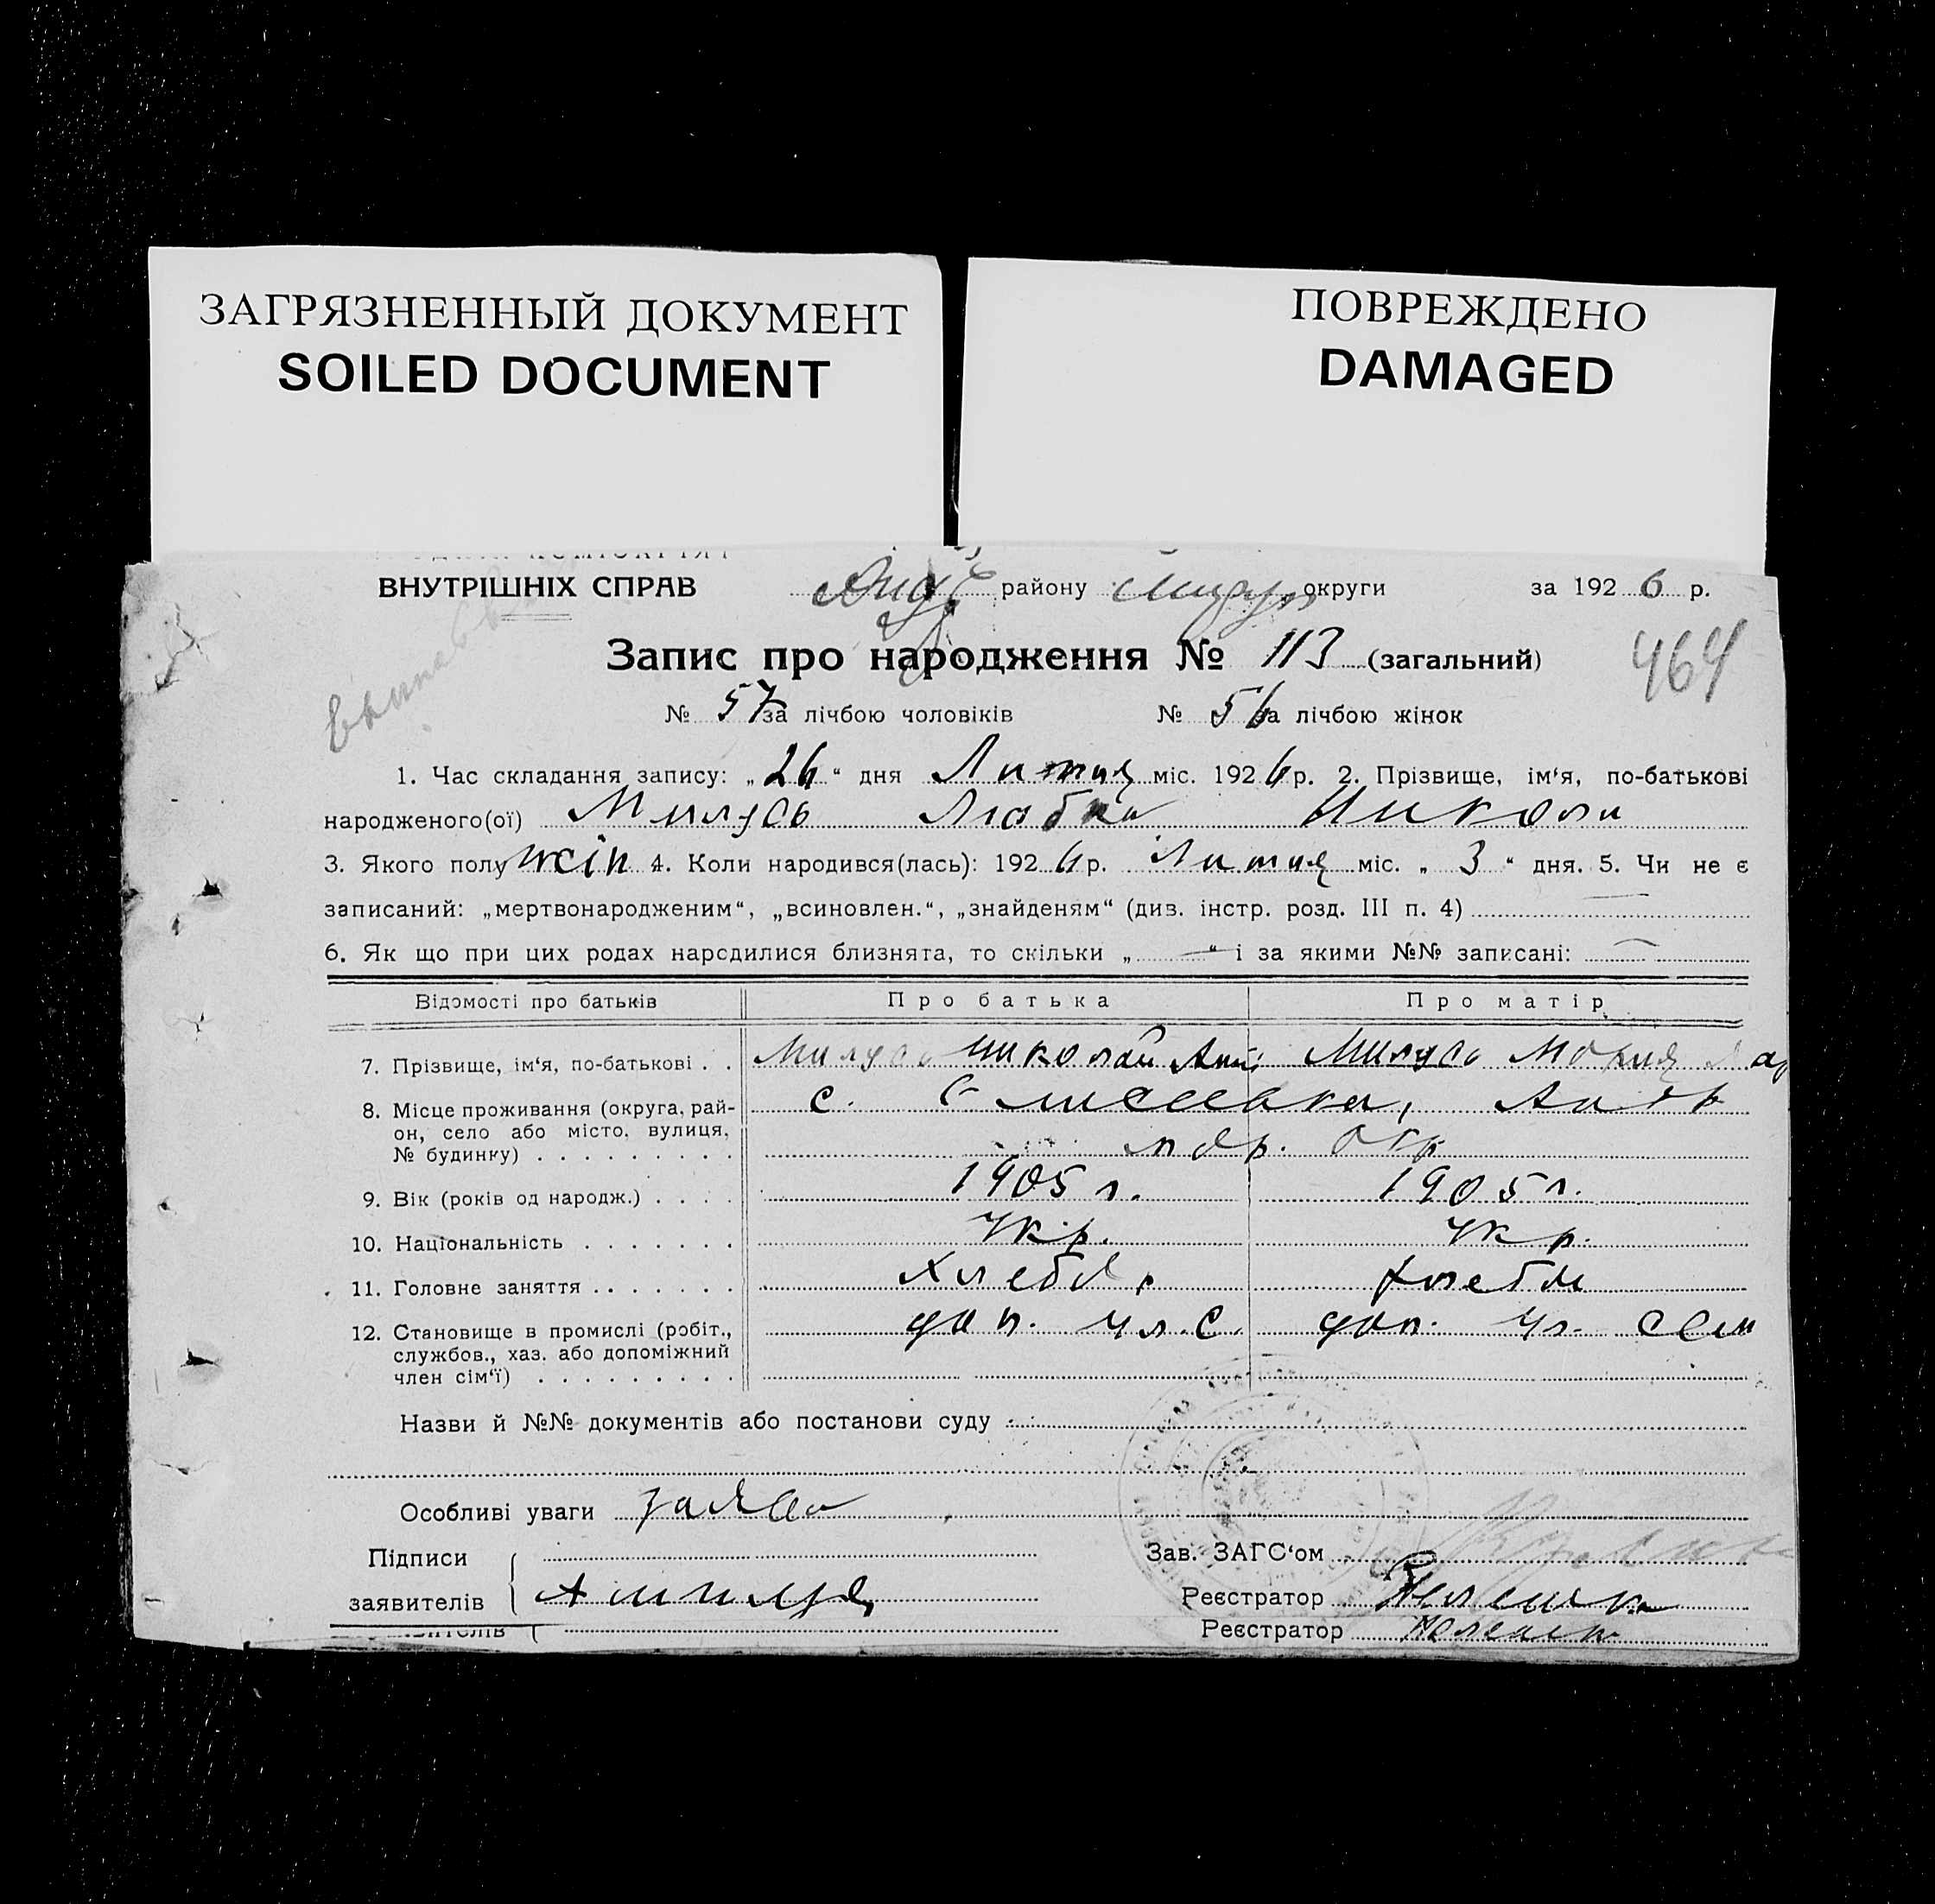 ЗАГРЯЗНЕННЫЙ ДОКУМЕНТ
SOILED DOCUMENT
ПОВРЕЖДЕНО
DAMAGED
ВНУТРІШНІХ СПРАВ району округи за 1926 р.
Запис про народження № 113 (загальний)
464
№ 57 за лічбою чоловіків № 56 за лічбою жінок
1. Час складання запису: „26“ дня Лютня міс. 1926 р. 2. Прізвище, ім‘я, по-батькові
народженого(ої) Милусь Любка Никола
3. Якого полу жін 4. Коли народився(лась): 1926 р. Лютня міс. „3“ дня. 5. Чи не є
записаний: „мертвонародженим“, „всиновлен.“, „знайденям“ (див. інстр. розд. III п. 4)
6. Як що при цих родах народилися близнята, то скільки „—“ і за якими №№ записані: —
Відомості про батьків Про батька Про матір
7. Прізвище, ім‘я, по-батькові . . Милусь Николай Ант. Милусь Мария
8. Місце проживання (округа, рай-
он, село або місто, вулиця,
№ будинку) . . . . . . . . . с.
окр
9. Вік (років од народж.) . . . . 1905 р. 1905 р.
10. Національність . . . . . . . Укр. Укр.
11. Головне заняття . . . . . . . Хлебоб. Хлебоб
12. Становище в промислі (робіт.,
службов., хаз. або допоміжний
член сім‘ї) . . . . . . . . . доп. чл. с. доп. чл. сем
Назви й №№ документів або постанови суду
Особливі уваги заява
Підписи
заявителів
Зав. ЗАГС‘ом
Реєстратор
Реєстратор